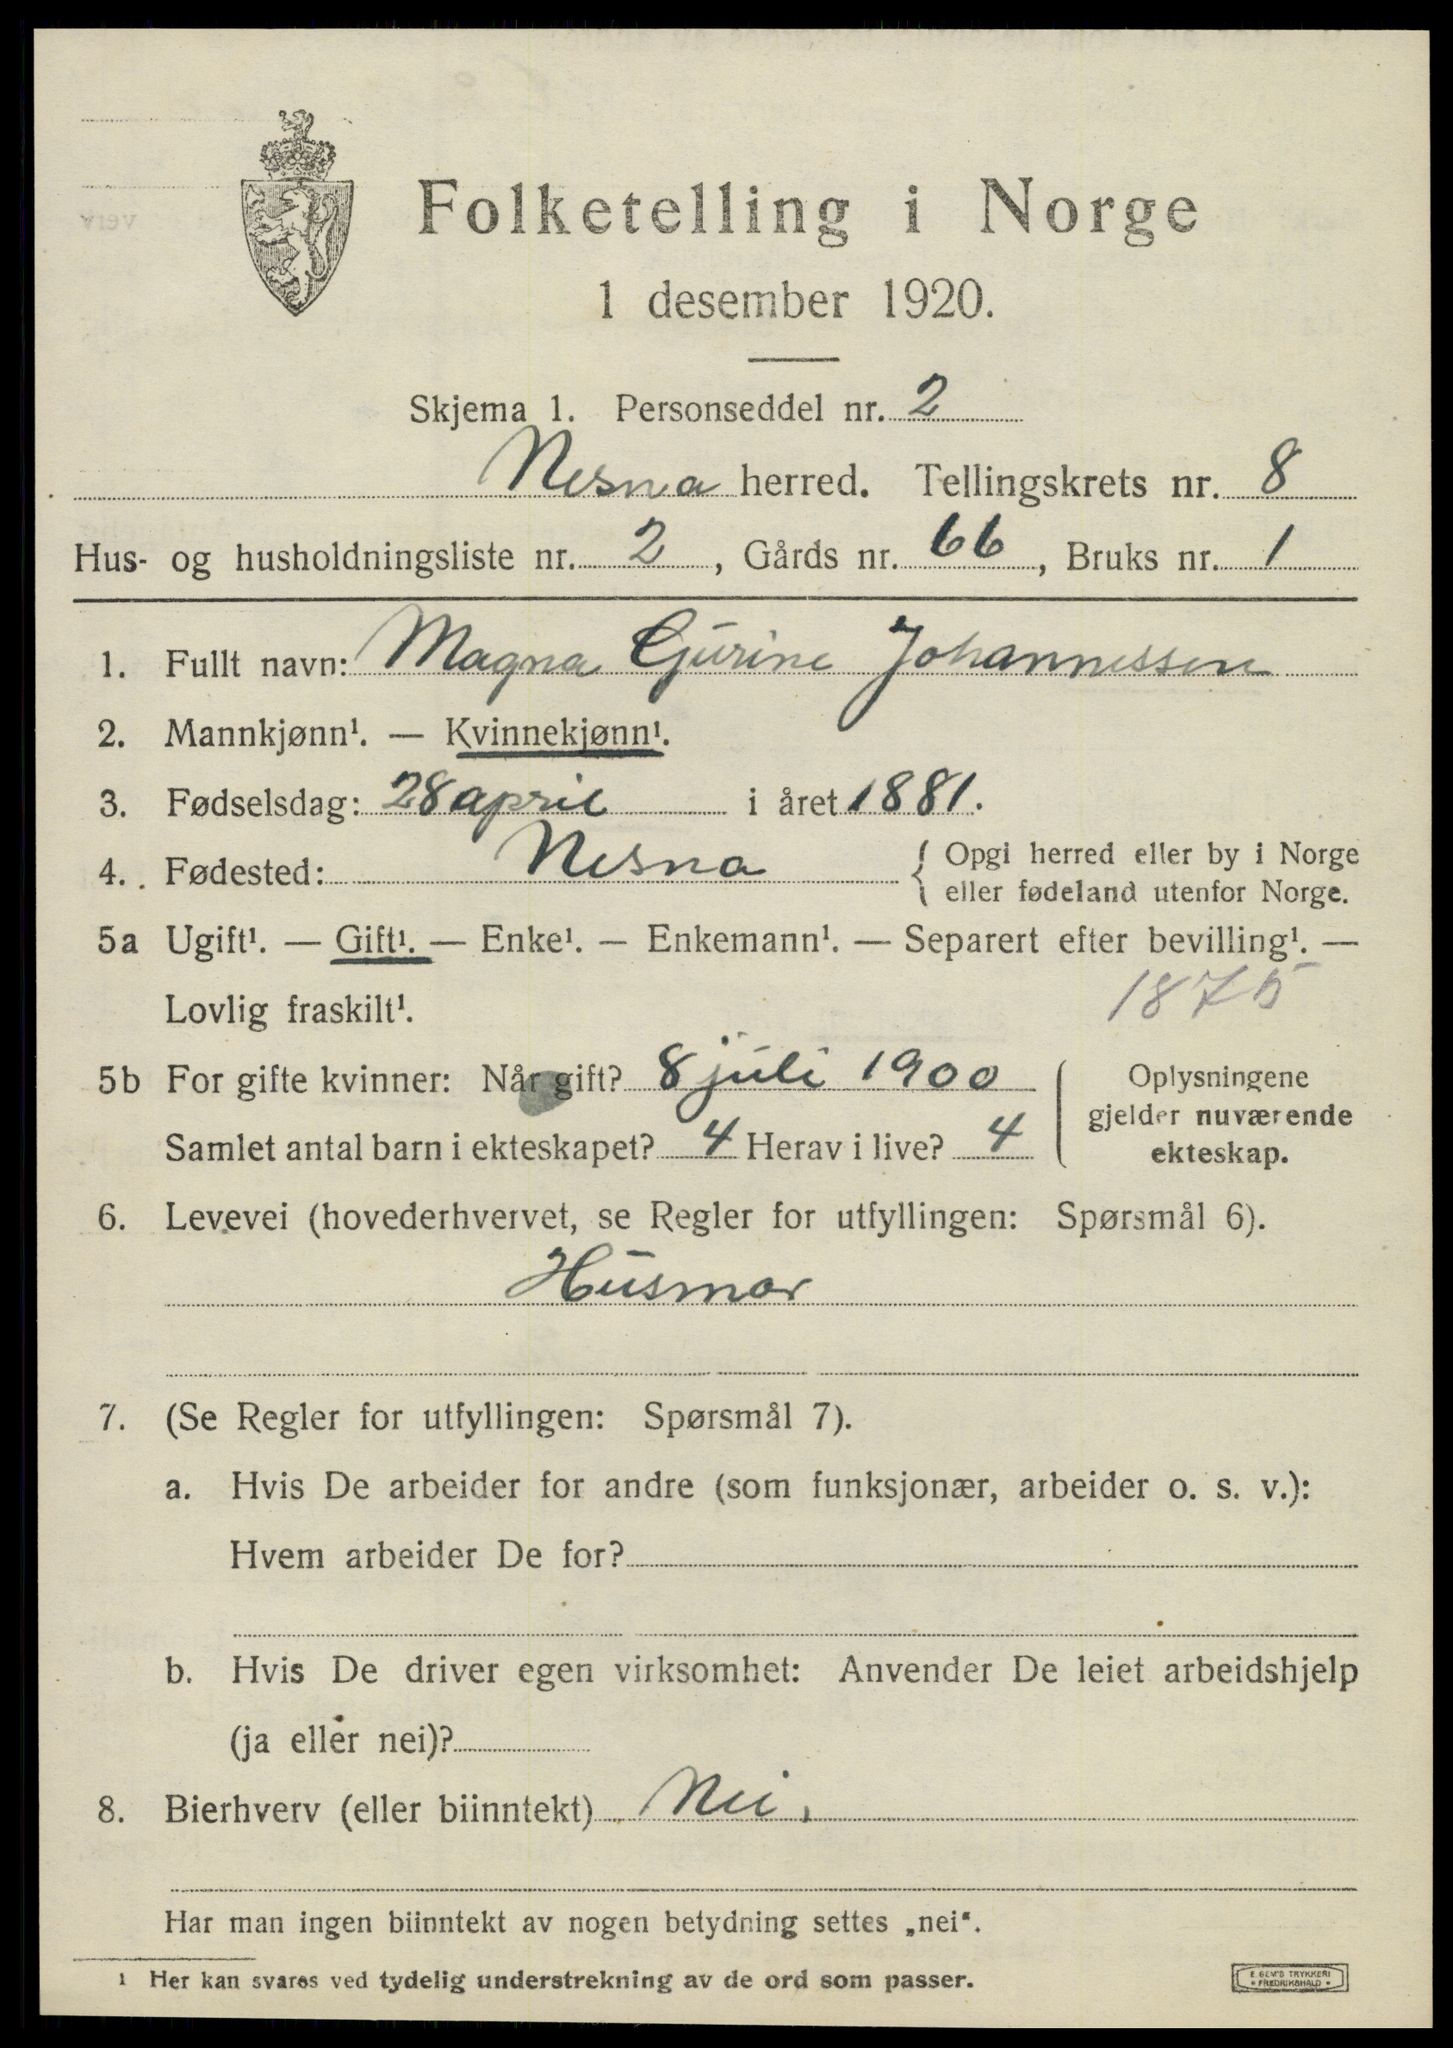 Folketelling i Norge
1 desember 1920.
Skjema 1. Personseddel nr. 2
Nesna herred. Tellingskrets nr. 8
Hus- og husholdningsliste nr. 2, Gårds nr. 66, Bruks nr. 1
1. Fullt navn: Magna Gjurine Johannessen
2. Mannkjønn¹. — Kvinnekjønn¹.
3. Fødselsdag: 28 april i året 1881.
4. Fødested: Nesna { Opgi herred eller by i Norge
eller fødeland utenfor Norge.
5a Ugift¹. — Gift¹. — Enke¹. — Enkemann¹. — Separert efter bevilling¹. —
Lovlig fraskilt¹. 1875
5b For gifte kvinner: Når gift? 8 juli 1900
Samlet antal barn i ekteskapet? 4 Herav i live? 4
Oplysningene
gjelder nuværende
ekteskap.
6. Levevei (hovederhvervet, se Regler for utfyllingen: Spørsmål 6).
Husmor
7. (Se Regler for utfyllingen: Spørsmål 7).
a. Hvis De arbeider for andre (som funksjonær, arbeider o. s. v.):
Hvem arbeider De for?
b. Hvis De driver egen virksomhet: Anvender De leiet arbeidshjelp
(ja eller nei)?
8. Bierhverv (eller biinntekt) Nei.
Har man ingen biinntekt av nogen betydning settes „nei“.
¹ Her kan svares ved tydelig understrekning av de ord som passer.
E. SEM'S TRYKKERI
• FREDRIKSHALD •